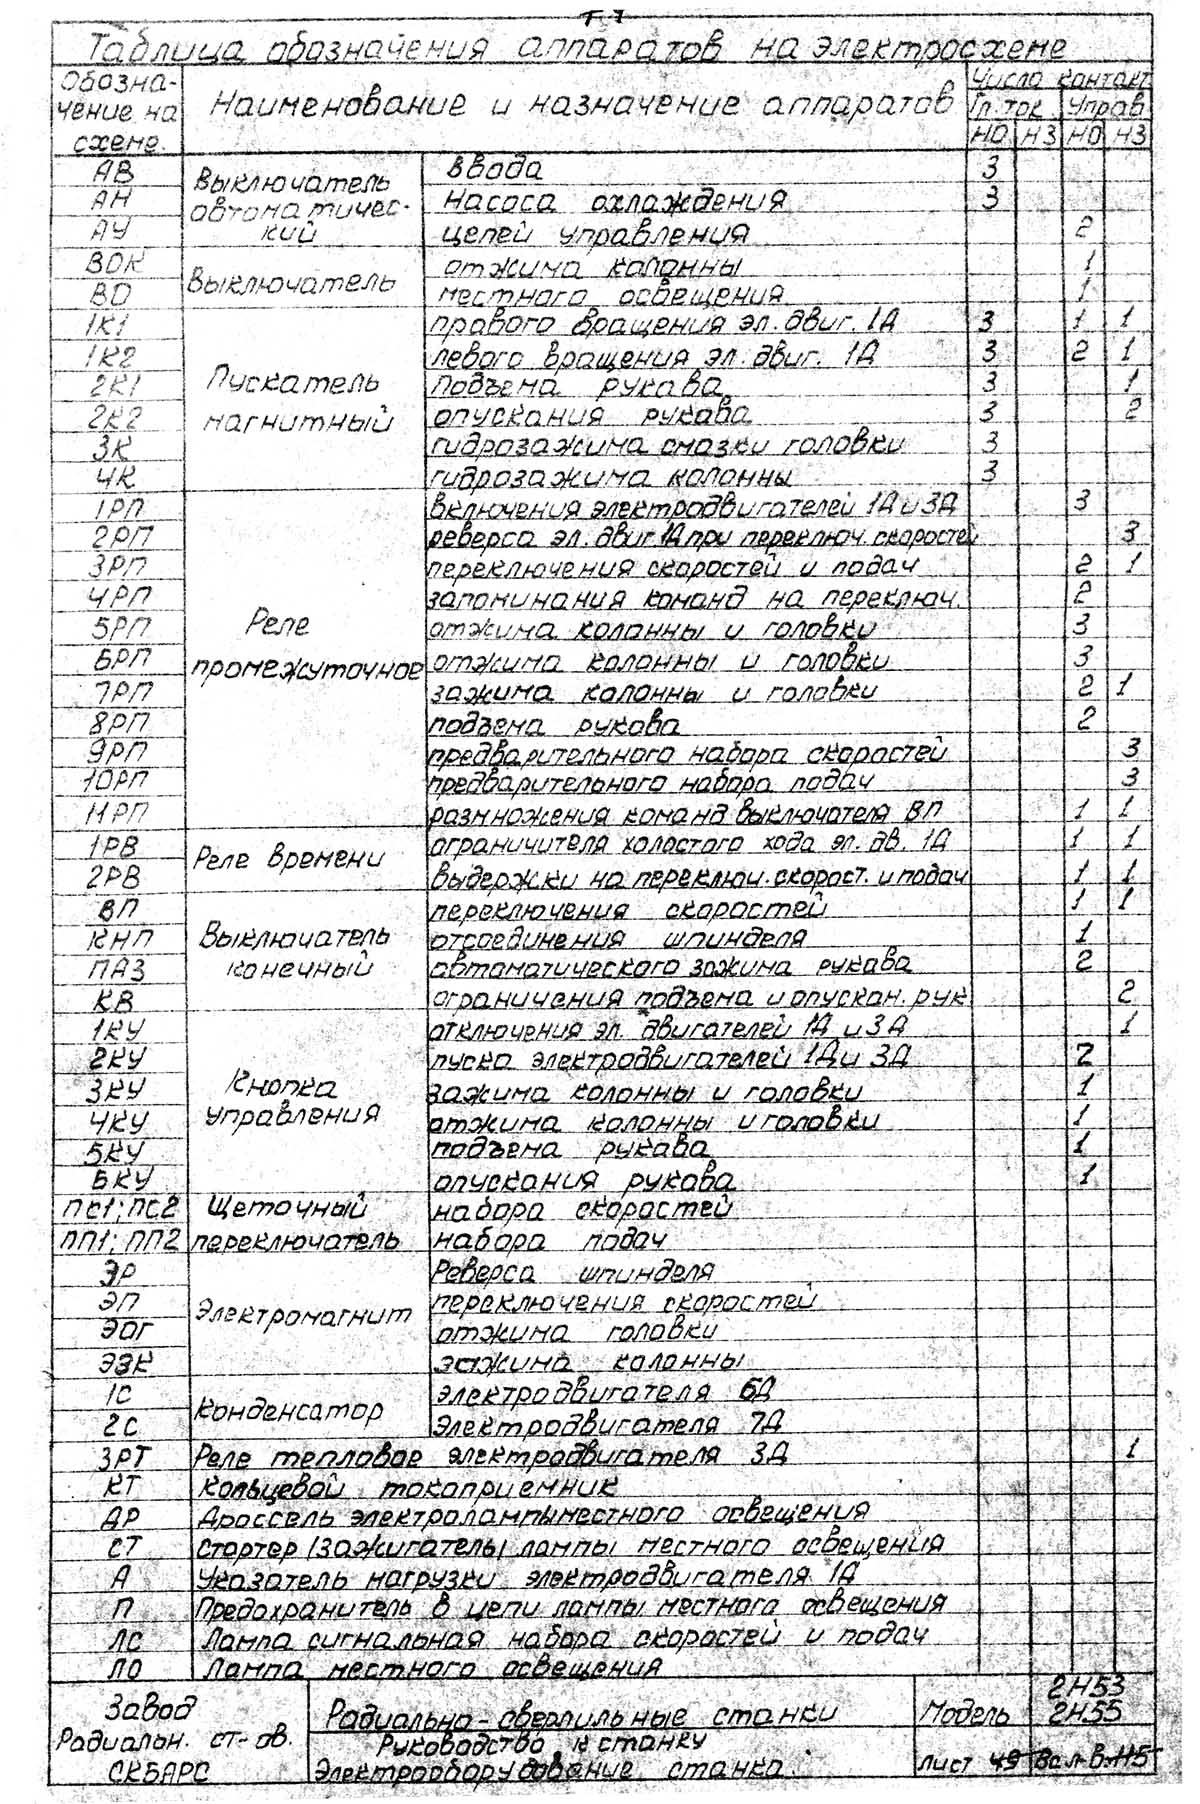 Т-7
Таблица обозначения аппаратов на электросхеме
Обозна-чение на схеме. Наименование и назначение аппаратов Числа контакт.
Гл. ток Управ.
НО НЗ НО НЗ
АВ Выключатель автоматичес-кий ввода 3
АН насоса охлаждения 3
АУ цепей управления 2
ВОК Выключатель отжима колонны 1
ВО местного освещения 1
1К1 Пускатель магнитный правого вращения эл. двиг. 1Д 3 1 1
1К2 левого вращения эл. двиг. 1Д 3 2 1
2К1 подъема рукава 3 1
2К2 опускания рукава 3 2
3К гидрозажима смазки головки 3
4К гидрозажима колонны 3
1РП Реле промежуточное включения электродвигателей 1Д и 3Д 3
2РП реверса эл. двиг. 1Д при переключ. скоростей 3
3РП переключения скоростей и подач 2 1
4РП запоминания команд на переключ. 2
5РП отжима колонны и головки 3
6РП отжима колонны и головки 3
7РП зажима колонны и головки 2 1
8РП подъема рукова 2
9РП предварительного набора скоростей 3
10РП предварительного набора подач 3
11РП размножения команд выключателя ВП 1 1
1РВ Реле времени ограничителя холостого хода эл. дв. 1Д 1 1
2РВ выдержки на переключ. скорост. и подач 1 1
ВП Выключатель конечный переключения скоростей 1 1
КНП отсоединения шпинделя 1
ПАЗ автоматического зажима рукава 2
КВ ограничения подъема и опускан. рук. 2
1КУ Кнопка управления отключения эл. двигателей 1Д и 3Д 1
2КУ пуска электродвигателей 1Д и 3Д 2
3КУ зажима колонны и головки 1
4КУ отжима колонны и головки 1
5КУ подъема рукава 1
6КУ опускания рукава 1
ПС1; ПС2 Щеточный переключатель набора скоростей
ПП1; ПП2 набора подач
ЭР Электромагнит Реверса шпинделя
ЭП переключения скоростей
ЭОГ отжима головки
ЭЗК зажима колонны
1С Конденсатор электродвигателя 6Д
2С электродвигателя 7Д
3РТ Реле тепловое электродвигателя 3Д 1
КТ Кольцевой токоприемник
ДР Дроссель электролампы местного освещения
СТ Стартер /зажигатель/ лампы местного освещения
А Указатель нагрузки электродвигателя 1Д
П Предохранитель в цепи лампы местного освещения
ЛС Лампа сигнальная набора скоростей и подач
ЛО Лампа местного освещения
Завод Радиальн. ст-ов. СКБАРС
Радиально-сверлильные станки
Руководство к станку
Электрооборудование станка.
Модель 2Н53 2Н55
Лист 49